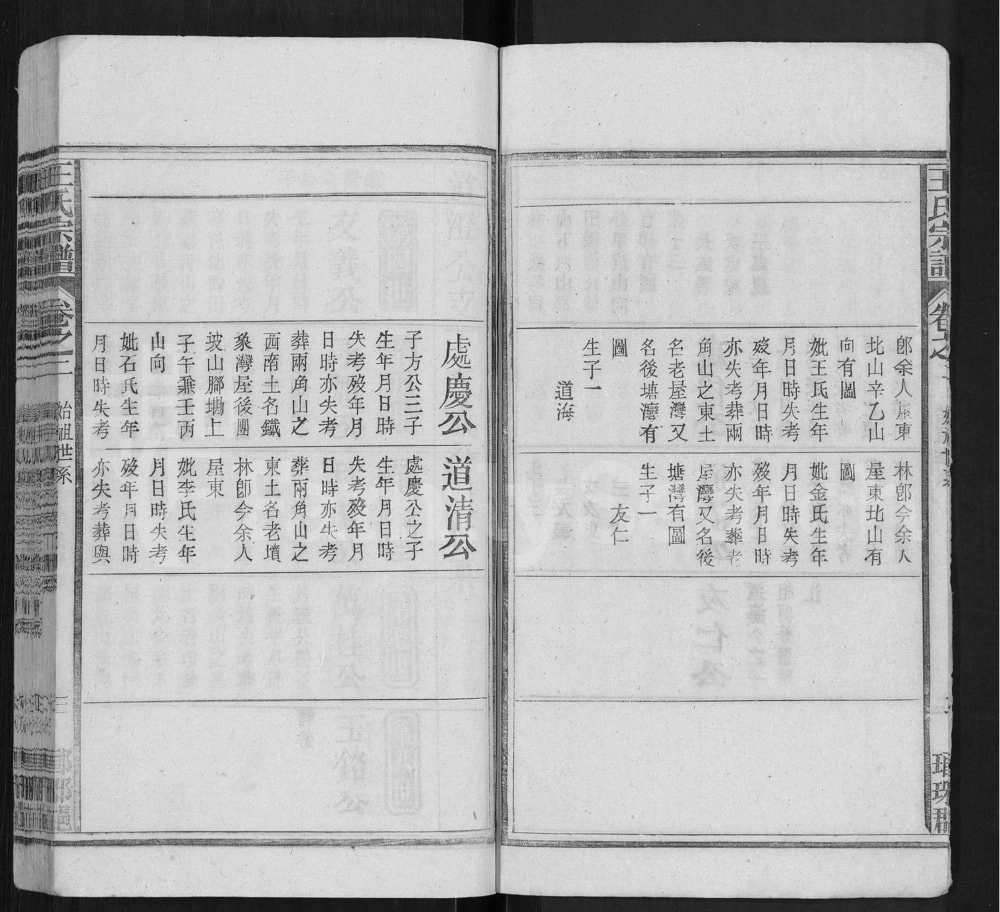 王氏宗譜
卷之二
琅琊郡
卽余人屋東
北山辛乙山
向有圖
妣王氏生年
月日時失考
歿年月日時
亦失考葬兩
角山之東土
名老屋灣又
名後塘灣有
圖
生子一
道海
林卽今余人
屋東北山有
圖
妣金氏生年
月日時失考
歿年月日時
亦失考葬老
屋灣又名後
塘灣有圖
生子一
友仁
處慶公
子方公三子
生年月日時
失考歿年月
日時亦失考
葬兩角山之
西南土名鐵
象灣屋後團
坡山腳塝上
子午兼壬丙
山向
妣石氏生年
月日時失考
道清公
處慶公之子
生年月日時
失考歿年月
日時亦失考
葬兩角山之
東土名老墳
林卽今余人
屋東
妣李氏生年
月日時失考
歿年月日時
亦失考葬與
王氏宗譜
卷之二
始祖世系
三